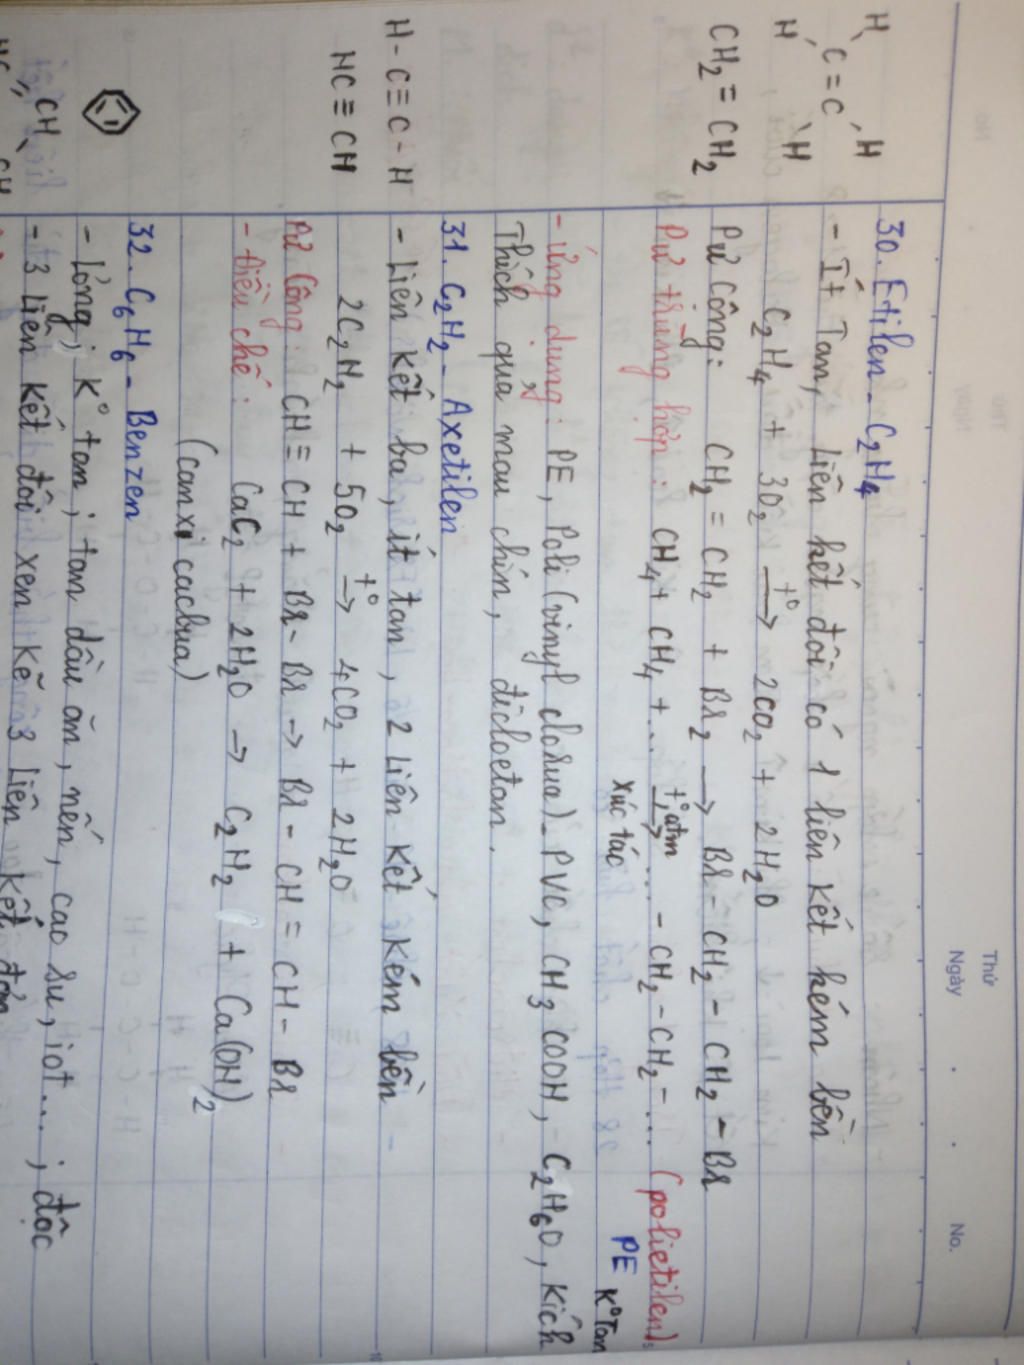 Thứ
Ngày . . No.
30. Etilen - C2H4
H H
C = C
H H
- Ít tan, liên kết đôi có 1 liên kết kém bền
C2H4 + 3O2 t° → 2CO2 + 2H2O
CH2 = CH2
Pư cộng: CH2 = CH2 + Br2 → Br - CH2 - CH2 - Br
Pư trùng hợp: CH4 + CH4 + ... t°, atm → ... - CH2 - CH2 - ... (polietilen)
xúc tác PE K° tan
- Ứng dụng: PE, Poli (vinyl clorua) - PVC, CH3COOH, C2H6O, kích
Thích quả mau chín, đicloetan.
31. C2H2 - Axetilen
H - C ≡ C - H
- Liên kết ba, ít tan, 2 liên kết kém bền
HC ≡ CH
2C2H2 + 5O2 t° → 4CO2 + 2H2O
Pư Cộng: CH ≡ CH + Br - Br → Br - CH = CH - Br
- Điều chế: CaC2 + 2H2O → C2H2 + Ca(OH)2
(canxi cacbua)
32. C6H6 - Benzen
- Lỏng; K° tan; tan dầu ăn, nến, cao su, iot ...; độc
CH
HC CH
- 3 liên kết đôi xen kẽ 3 liên kết đơn